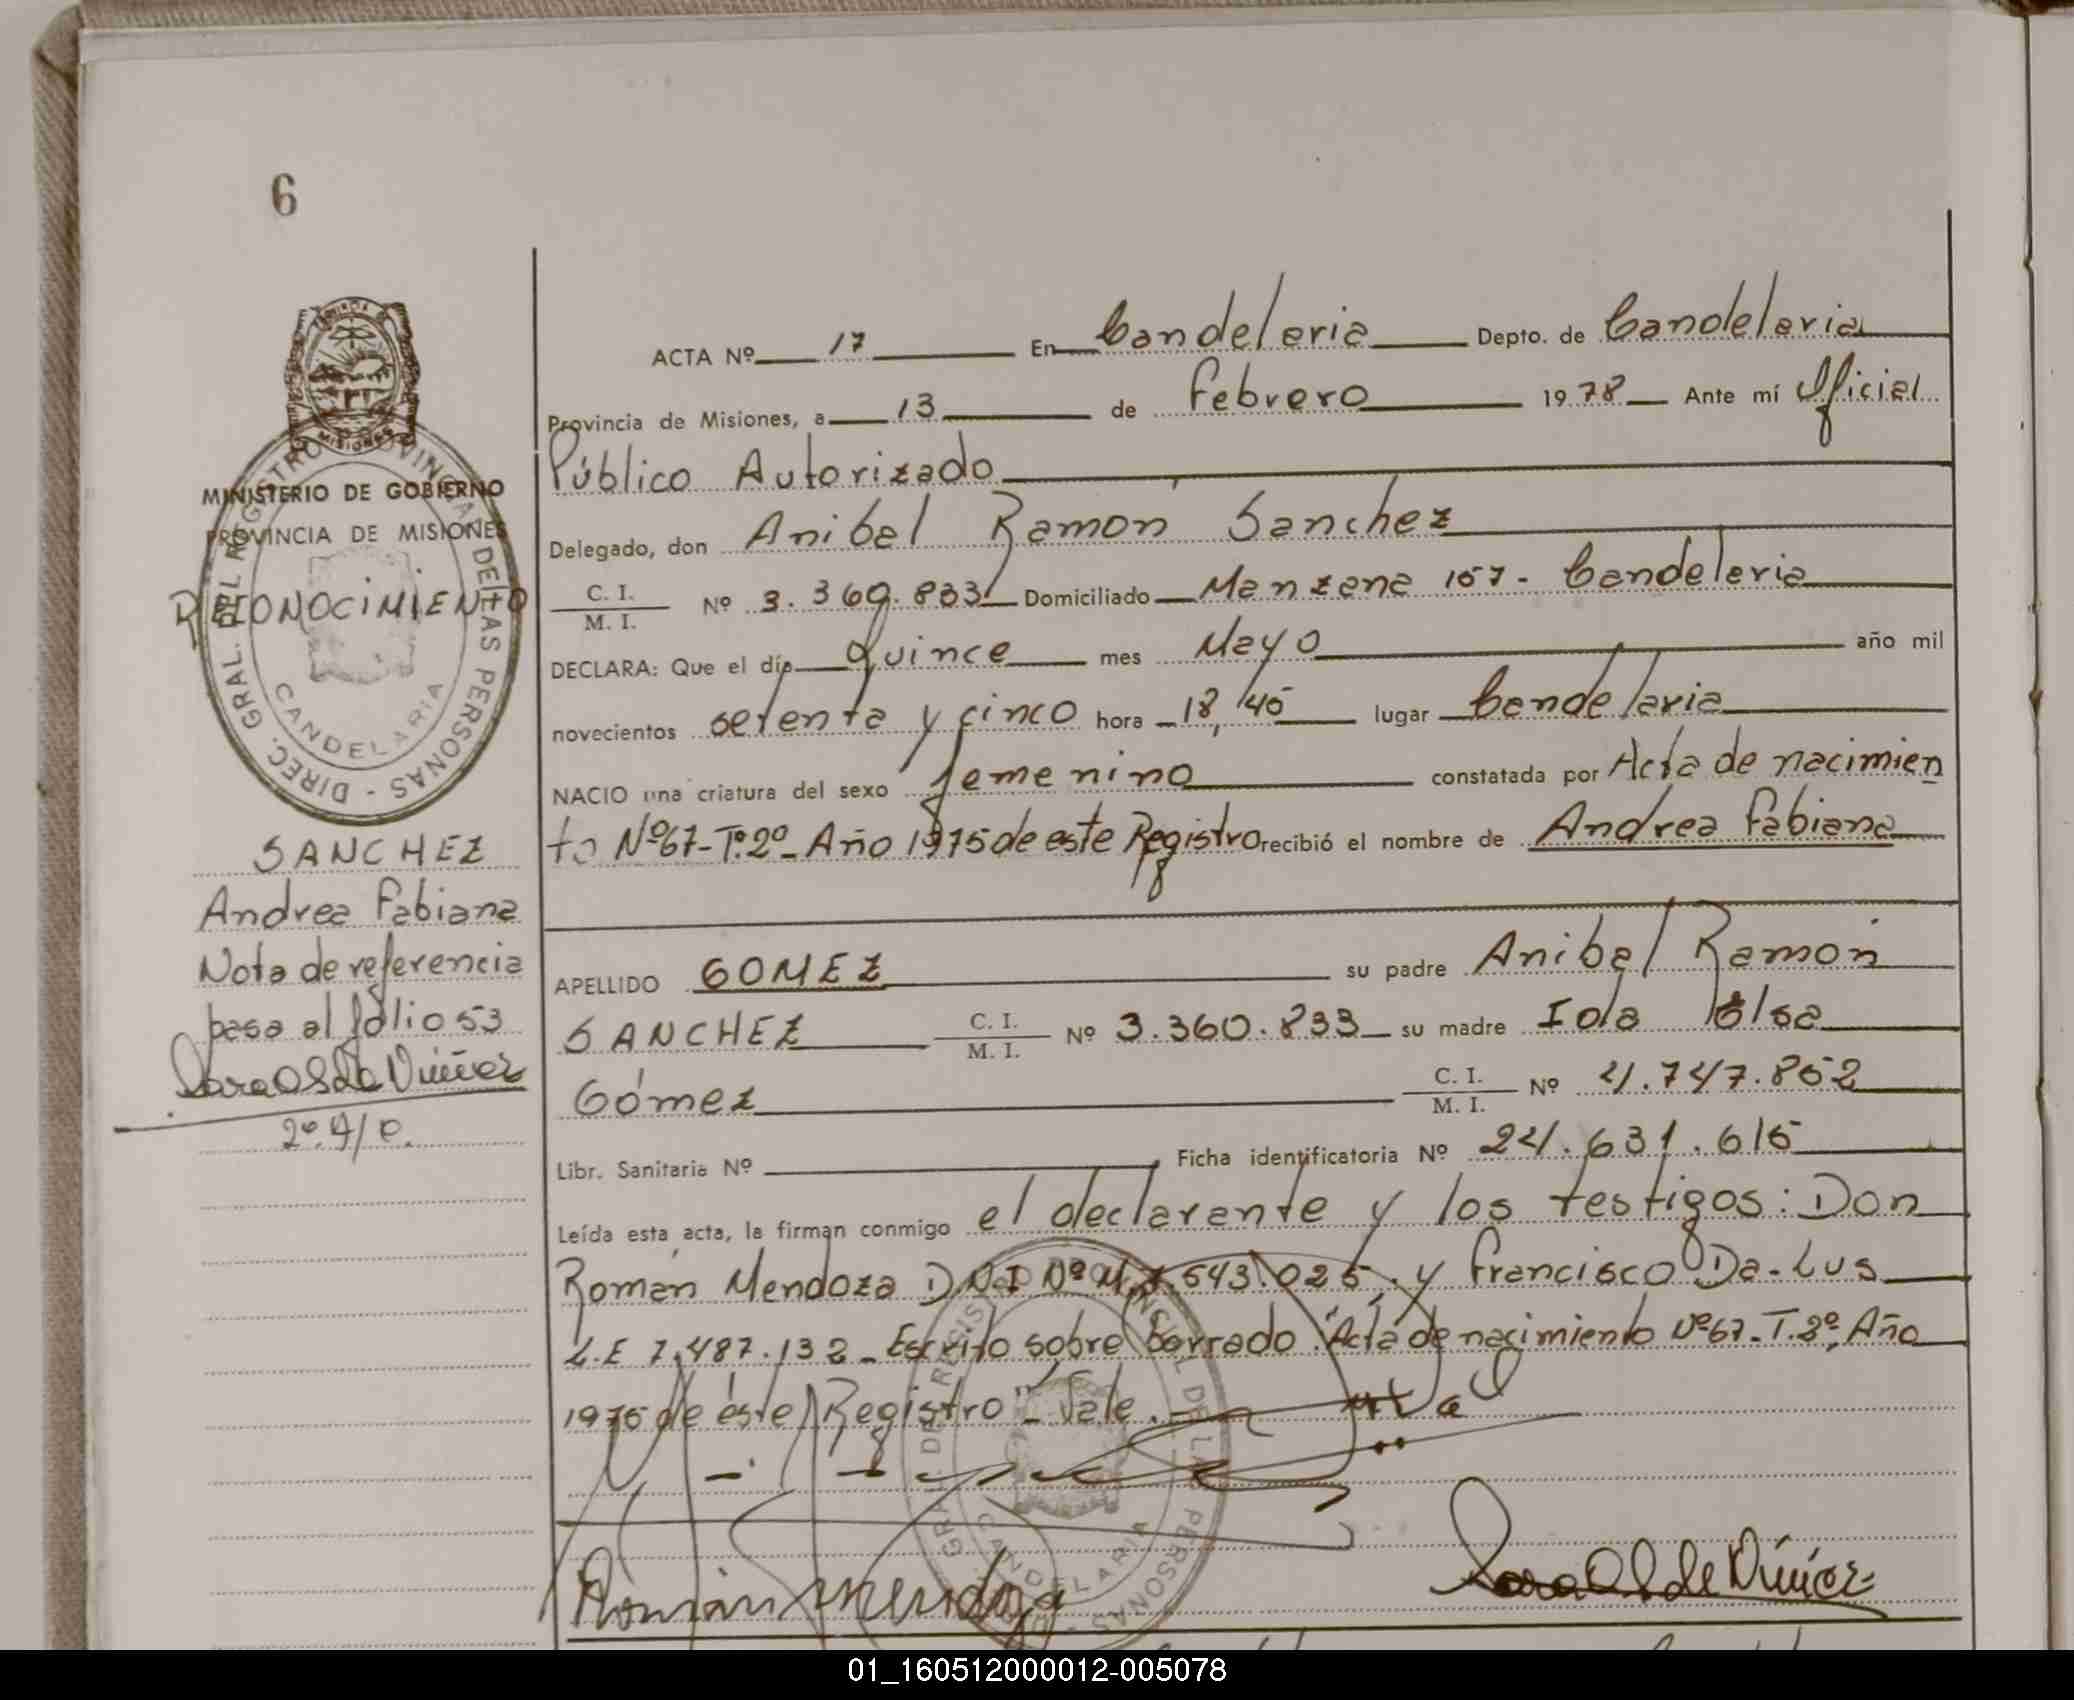 6
ACTA Nº 17 En Candelaria Depto. de Candelaria
Provincia de Misiones, a 13 de Febrero 1978 Ante mí Oficial
Público Autorizado
Delegado, don Anibal Ramón Sanchez
C. I.
M. I.
Nº 3.360.833 Domiciliado Manzana 157 - Candelaria
DECLARA: Que el día Quince mes Mayo año mil
novecientos setenta y cinco hora 18,45 lugar Candelaria
NACIO una criatura del sexo femenino constatada por Acta de nacimien
to Nº 67-Tº.2º- Año 1975 de este Registro recibió el nombre de Andrea Fabiana
APELLIDO GOMEZ su padre Anibal Ramón
SANCHEZ C. I. M. I. Nº 3.360.833 su madre Iola Elsa
Gómez C. I. M. I. Nº 4.747.852
Libr. Sanitaria Nº Ficha identificatoria Nº 24.631.615
Leída esta acta, la firman conmigo el declarante y los testigos: Don
Román Mendoza D.N.I Nº M. 543.025. y Francisco Da-Lus
L.E 7.487.132 - Escrito sobre borrado "Acta de nacimiento Nº 67-T.2º. Año
1975 de éste Registro" - Vale.
Román Mendoza
PROVINCIA
MISIONES
MINISTERIO DE GOBIERNO
PROVINCIA DE MISIONES
RECONOCIMIENTO
DIREC. GRAL. DEL REGISTRO PROVINCIAL DE LAS PERSONAS -
CANDELARIA
SANCHEZ
Andrea Fabiana
Nota de referencia
pasa al folio 53
GRAL. DEL REGISTRO PROVINCIAL DE LAS PERSONAS
CANDELARIA
01_160512000012-005078